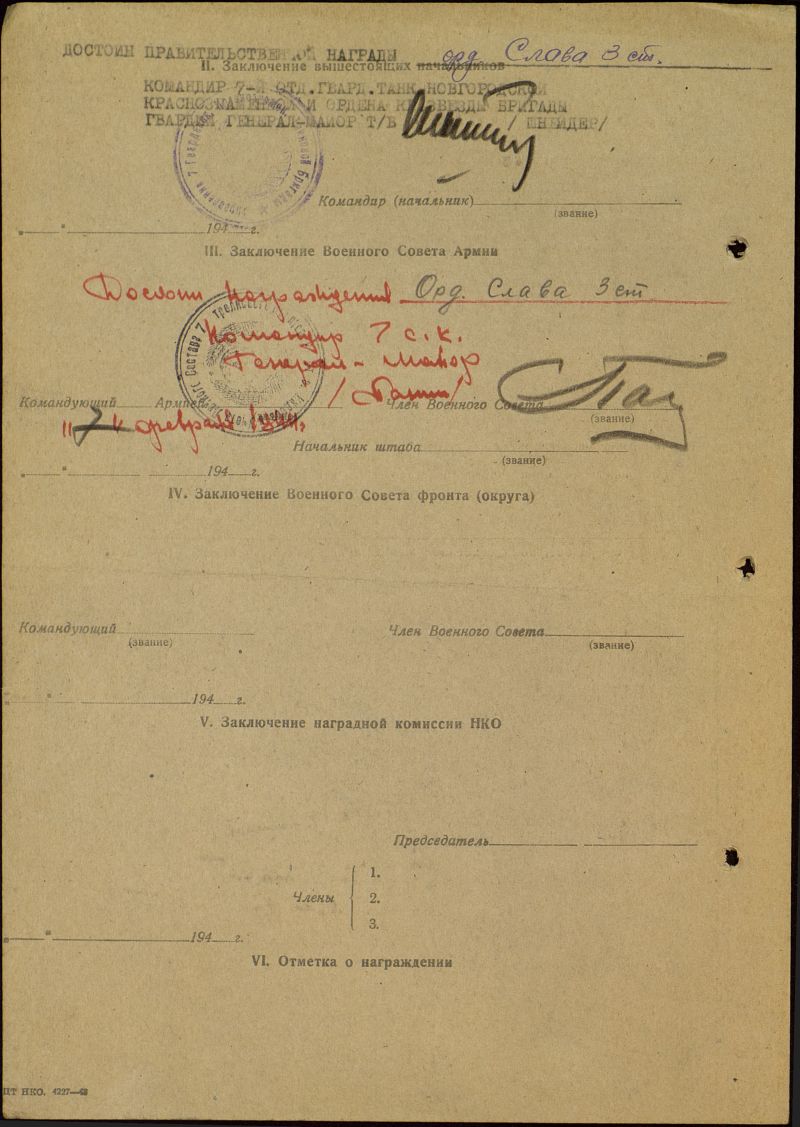 ДОСТОИН ПРАВИТЕЛЬСТВЕННОЙ НАГРАДЫ орд. Слава 3 ст.
II. Заключение вышестоящих начальников
КОМАНДИР 7-Й ОТД.ГВАРД.ТАНК НОВГОРОДСКОЙ
КРАСНОЗНАМЕННОЙ И ОРДЕНА КР.ЗВЕЗДЫ БРИГАДЫ
ГВАРДИИ ГЕНЕРАЛ-МАЙОР Т/В / ШНЕЙДЕР/
Командир (начальник)
(звание)
" " 194 г.
III. Заключение Военного Совета Армии
Достоин награждения Орд. Слава 3 ст
Командир 7 с.к.
Генерал-майор
Командующий Армией Член Военного Совета
(звание)
"7" февраля 1944г.
Начальник штаба
(звание)
" " 194 г.
IV. Заключение Военного Совета фронта (округа)
Командующий Член Военного Совета
(звание) (звание)
" " 194 г.
V. Заключение наградной комиссии НКО
Председатель
1.
Члены 2.
3.
" " 194 г.
VI. Отметка о награждении
ЦТ НКО. 4227—43